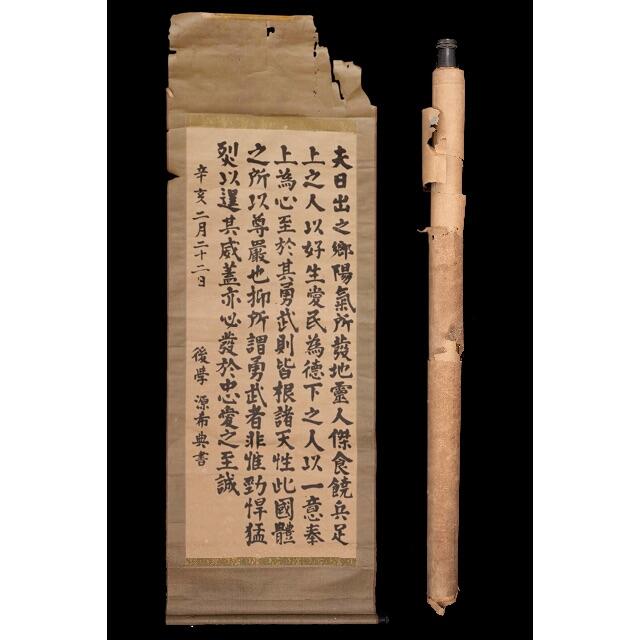 夫日出之鄉陽氣所發地靈人傑食饒兵足
上之人以好生愛民為德下之人以一意奉
上為心至於其勇武則皆根諸天性此國體
之所以尊嚴也抑所謂勇武者非惟勁悍猛
烈以逞其威蓋亦必發於忠愛之至誠
辛亥二月二十二日
後學 源希典書